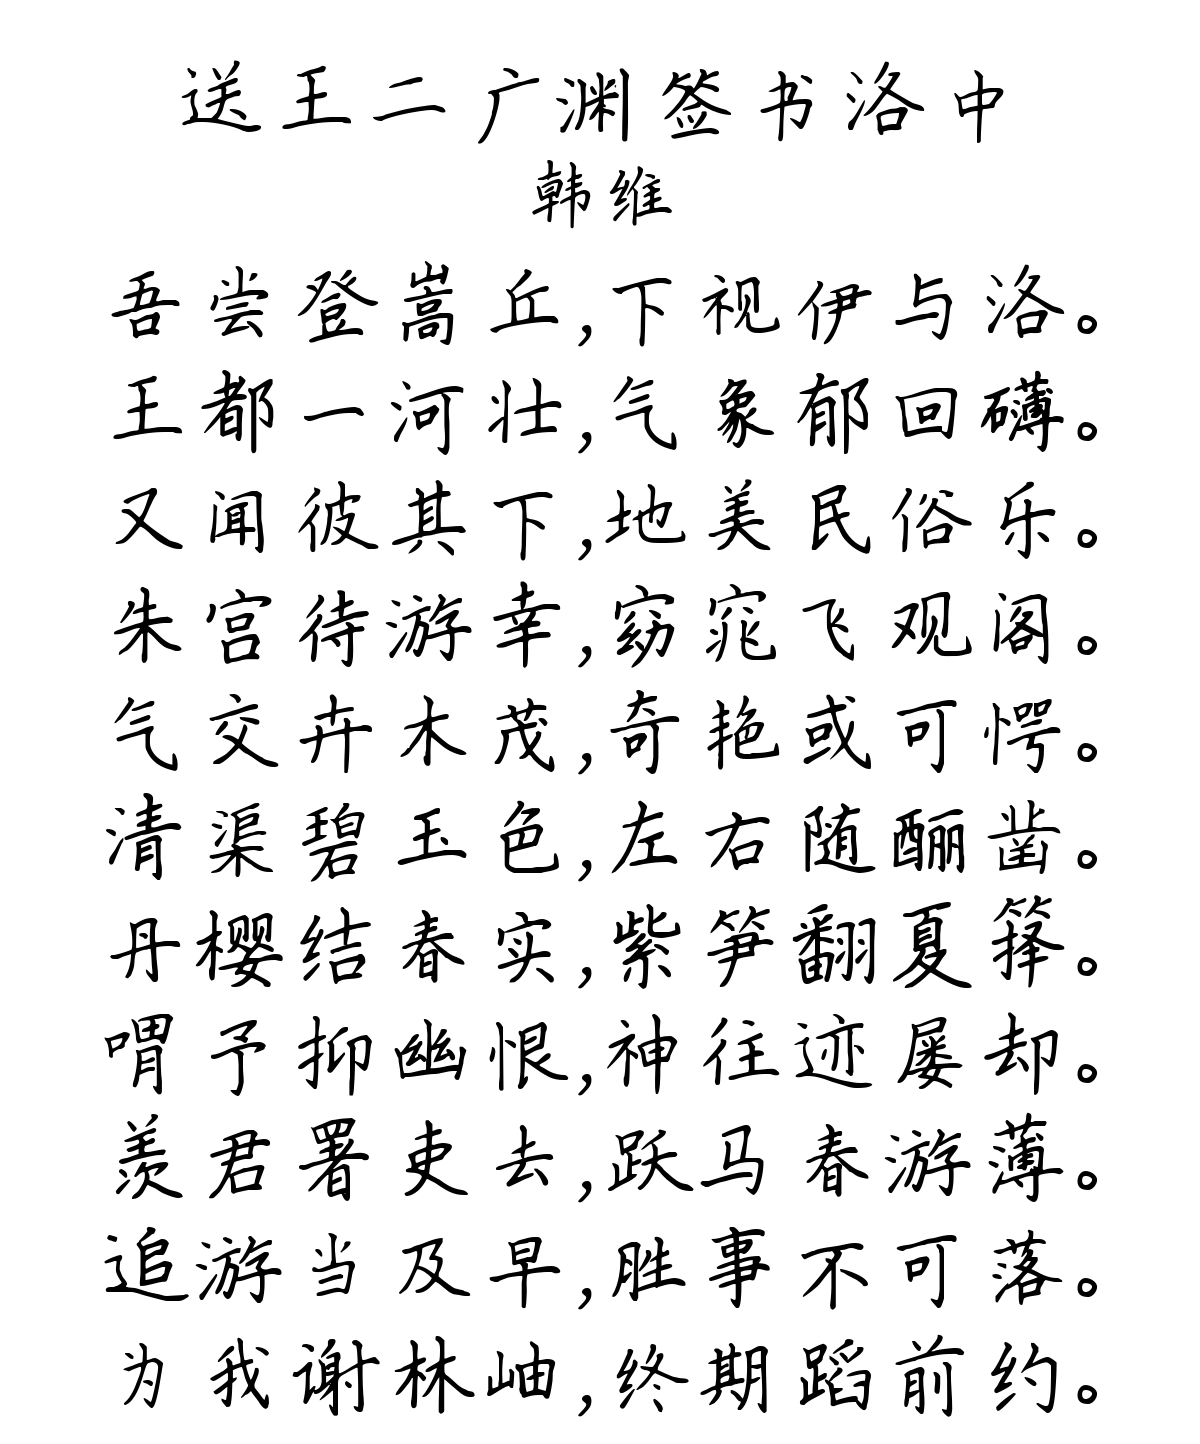 送王二广渊签书洛中
韩维
吾尝登嵩丘,下视伊与洛。
王都一河壮,气象郁回礴。
又闻彼其下,地美民俗乐。
朱宫待游幸,窈窕飞观阁。
气交卉木茂,奇艳或可愕。
清渠碧玉色,左右随酾凿。
丹樱结春实,紫笋翻夏箨。
喟予抑幽恨,神往迹屡却。
羡君署吏去,跃马春游薄。
追游当及早,胜事不可落。
为我谢林岫,终期蹈前约。